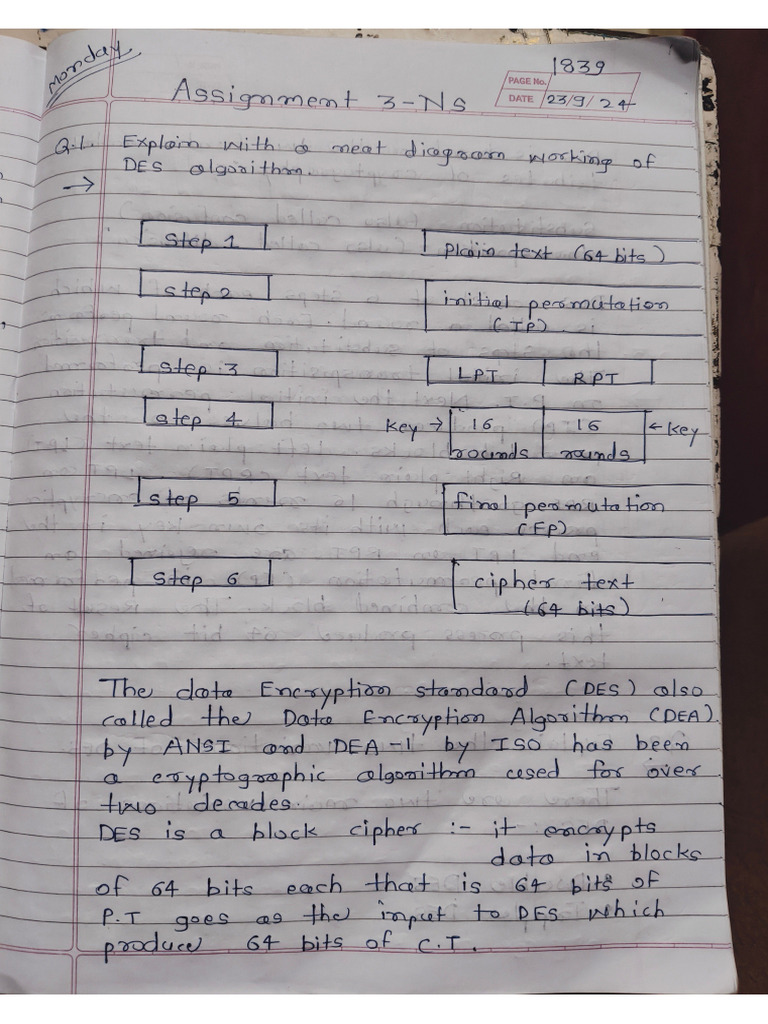 Monday
1839
PAGE No.
DATE 23/9/24
Assignment 3-NS
Q.1. Explain with a neat diagram working of
→ DES algorithm.
Step 1 plain text (64 bits)
step 2 initial permutation
(IP)
step 3 LPT RPT
step 4 key → 16 16 ← key
rounds rounds
step 5 final permutation
(FP)
step 6 cipher text
(64 bits)
The data Encryption standard (DES) also
called the Data Encryption Algorithm (DEA)
by ANSI and DEA-1 by ISO has been
a cryptographic algorithm used for over
two decades.
DES is a block cipher :- it encrypts
data in blocks
of 64 bits each that is 64 bits of
P.T goes as the input to DES which
produce 64 bits of C.T.